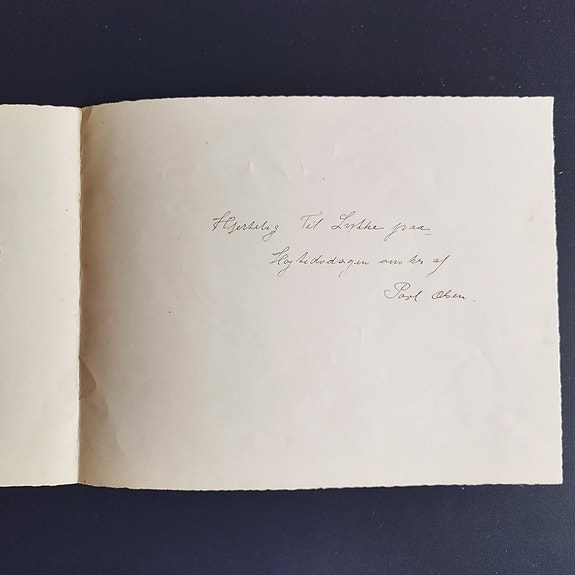 Hjertelig Til Lykke paa
Højtidsdagen ønskes af
Poul Olsen.